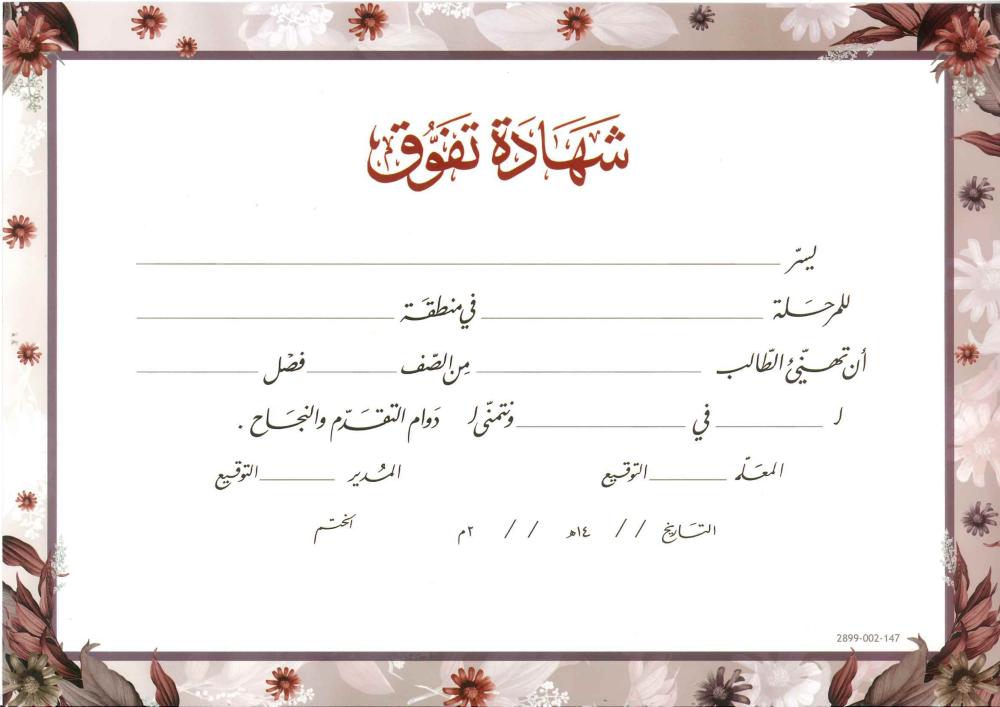 شَهَادَة تَفَوُّق
يسرّ
للمرحَلة في منطقَة
أن تهنّئ الطّالب مِن الصّف فصْل
لـ في ونتمنّى لـ دَوام التقَدّم والنجَاح .
المعَلّم التوقيع المُدير التوقيع
التَاريخ / / ١٤هـ / / ٢م الختم
2899-002-147